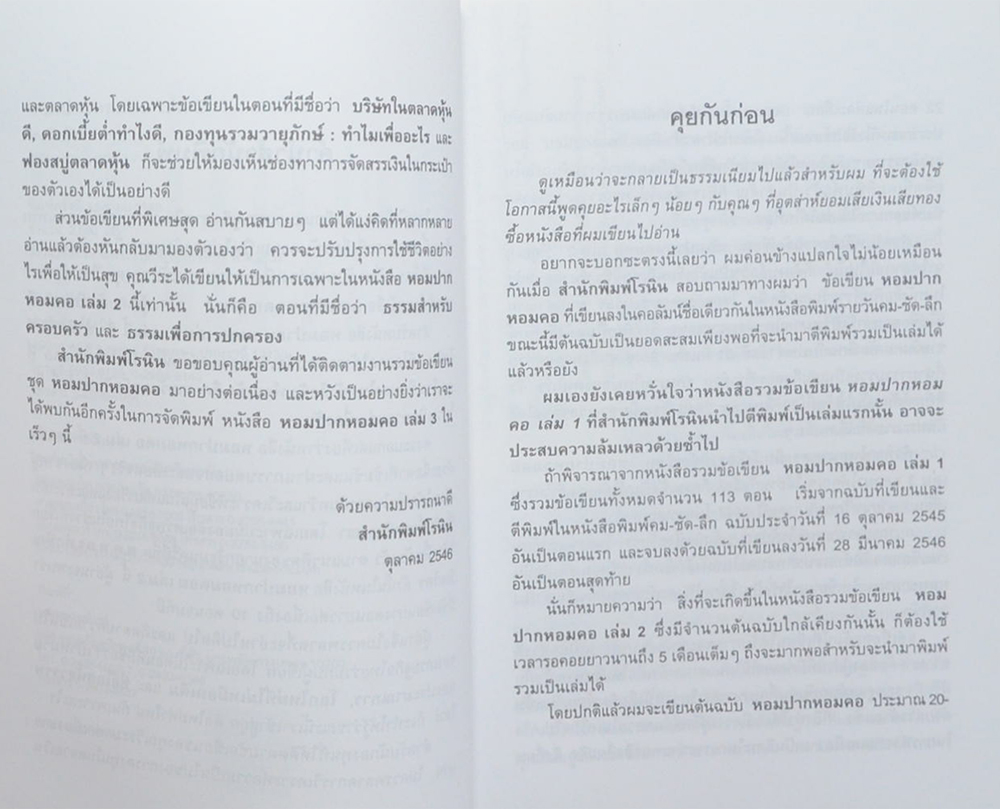 และตลาดหุ้น โดยเฉพาะข้อเขียนในตอนที่มีชื่อว่า บริษัทในตลาดหุ้น
ดี, ดอกเบี้ยต่ำทำไงดี, กองทุนรวมวายุภักษ์ : ทำไมเพื่ออะไร และ
ฟองสบู่ตลาดหุ้น ก็จะช่วยให้มองเห็นช่องทางการจัดสรรเงินในกระเป๋า
ของตัวเองได้เป็นอย่างดี
ส่วนข้อเขียนที่พิเศษสุด อ่านกันสบายๆ แต่ได้แง่คิดที่หลากหลาย
อ่านแล้วต้องหันกลับมามองตัวเองว่า ควรจะปรับปรุงการใช้ชีวิตอย่าง
ไรเพื่อให้เป็นสุข คุณวีระได้เขียนให้เป็นการเฉพาะในหนังสือ หอมปาก
หอมคอ เล่ม 2 นี้เท่านั้น นั่นก็คือ ตอนที่มีชื่อว่า ธรรมสำหรับ
ครอบครัว และ ธรรมเพื่อการปกครอง
สำนักพิมพ์โรนิน ขอขอบคุณผู้อ่านที่ได้ติดตามงานรวมข้อเขียน
ชุด หอมปากหอมคอ มาอย่างต่อเนื่อง และหวังเป็นอย่างยิ่งว่าเราจะ
ได้พบกันอีกครั้งในการจัดพิมพ์ หนังสือ หอมปากหอมคอ เล่ม 3 ใน
เร็วๆ นี้
ด้วยความปรารถนาดี
สำนักพิมพ์โรนิน
ตุลาคม 2546
คุยกันก่อน
ดูเหมือนว่าจะกลายเป็นธรรมเนียมไปแล้วสำหรับผม ที่จะต้องใช้
โอกาสนี้พูดคุยอะไรเล็กๆ น้อยๆ กับคุณๆ ที่อุตส่าห์ยอมเสียเงินเสียทอง
ซื้อหนังสือที่ผมเขียนไปอ่าน
อยากจะบอกซะตรงนี้เลยว่า ผมค่อนข้างแปลกใจไม่น้อยเหมือน
กันเมื่อ สำนักพิมพ์โรนิน สอบถามมาทางผมว่า ข้อเขียน หอมปาก
หอมคอ ที่เขียนลงในคอลัมน์ชื่อเดียวกันในหนังสือพิมพ์รายวันคม-ชัด-ลึก
ขณะนี้มีต้นฉบับเป็นยอดสะสมเพียงพอที่จะนำมาตีพิมพ์รวมเป็นเล่มได้
แล้วหรือยัง
ผมเองยังเคยหวั่นใจว่าหนังสือรวมข้อเขียน หอมปากหอม
คอ เล่ม 1 ที่สำนักพิมพ์โรนินนำไปตีพิมพ์เป็นเล่มแรกนั้น อาจจะ
ประสบความล้มเหลวด้วยซ้ำไป
ถ้าพิจารณาจากหนังสือรวมข้อเขียน หอมปากหอมคอ เล่ม 1
ซึ่งรวมข้อเขียนทั้งหมดจำนวน 113 ตอน เริ่มจากฉบับที่เขียนและ
ตีพิมพ์ในหนังสือพิมพ์คม-ชัด-ลึก ฉบับประจำวันที่ 16 ตุลาคม 2545
อันเป็นตอนแรก และจบลงด้วยฉบับที่เขียนลงวันที่ 28 มีนาคม 2546
อันเป็นตอนสุดท้าย
นั่นก็หมายความว่า สิ่งที่จะเกิดขึ้นในหนังสือรวมข้อเขียน หอม
ปากหอมคอ เล่ม 2 ซึ่งมีจำนวนต้นฉบับใกล้เคียงกันนั้น ก็ต้องใช้
เวลารอคอยยาวนานถึง 5 เดือนเต็มๆ ถึงจะมากพอสำหรับจะนำมาพิมพ์
รวมเป็นเล่มได้
โดยปกติแล้วผมจะเขียนต้นฉบับ หอมปากหอมคอ ประมาณ 20-